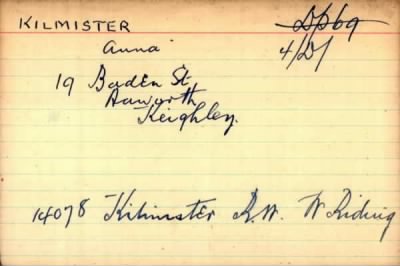 KILMISTER
D/69
Anna
4/D/
19 Baden St
Haworth
Keighley.
14078 Kilmister R.W. W Riding